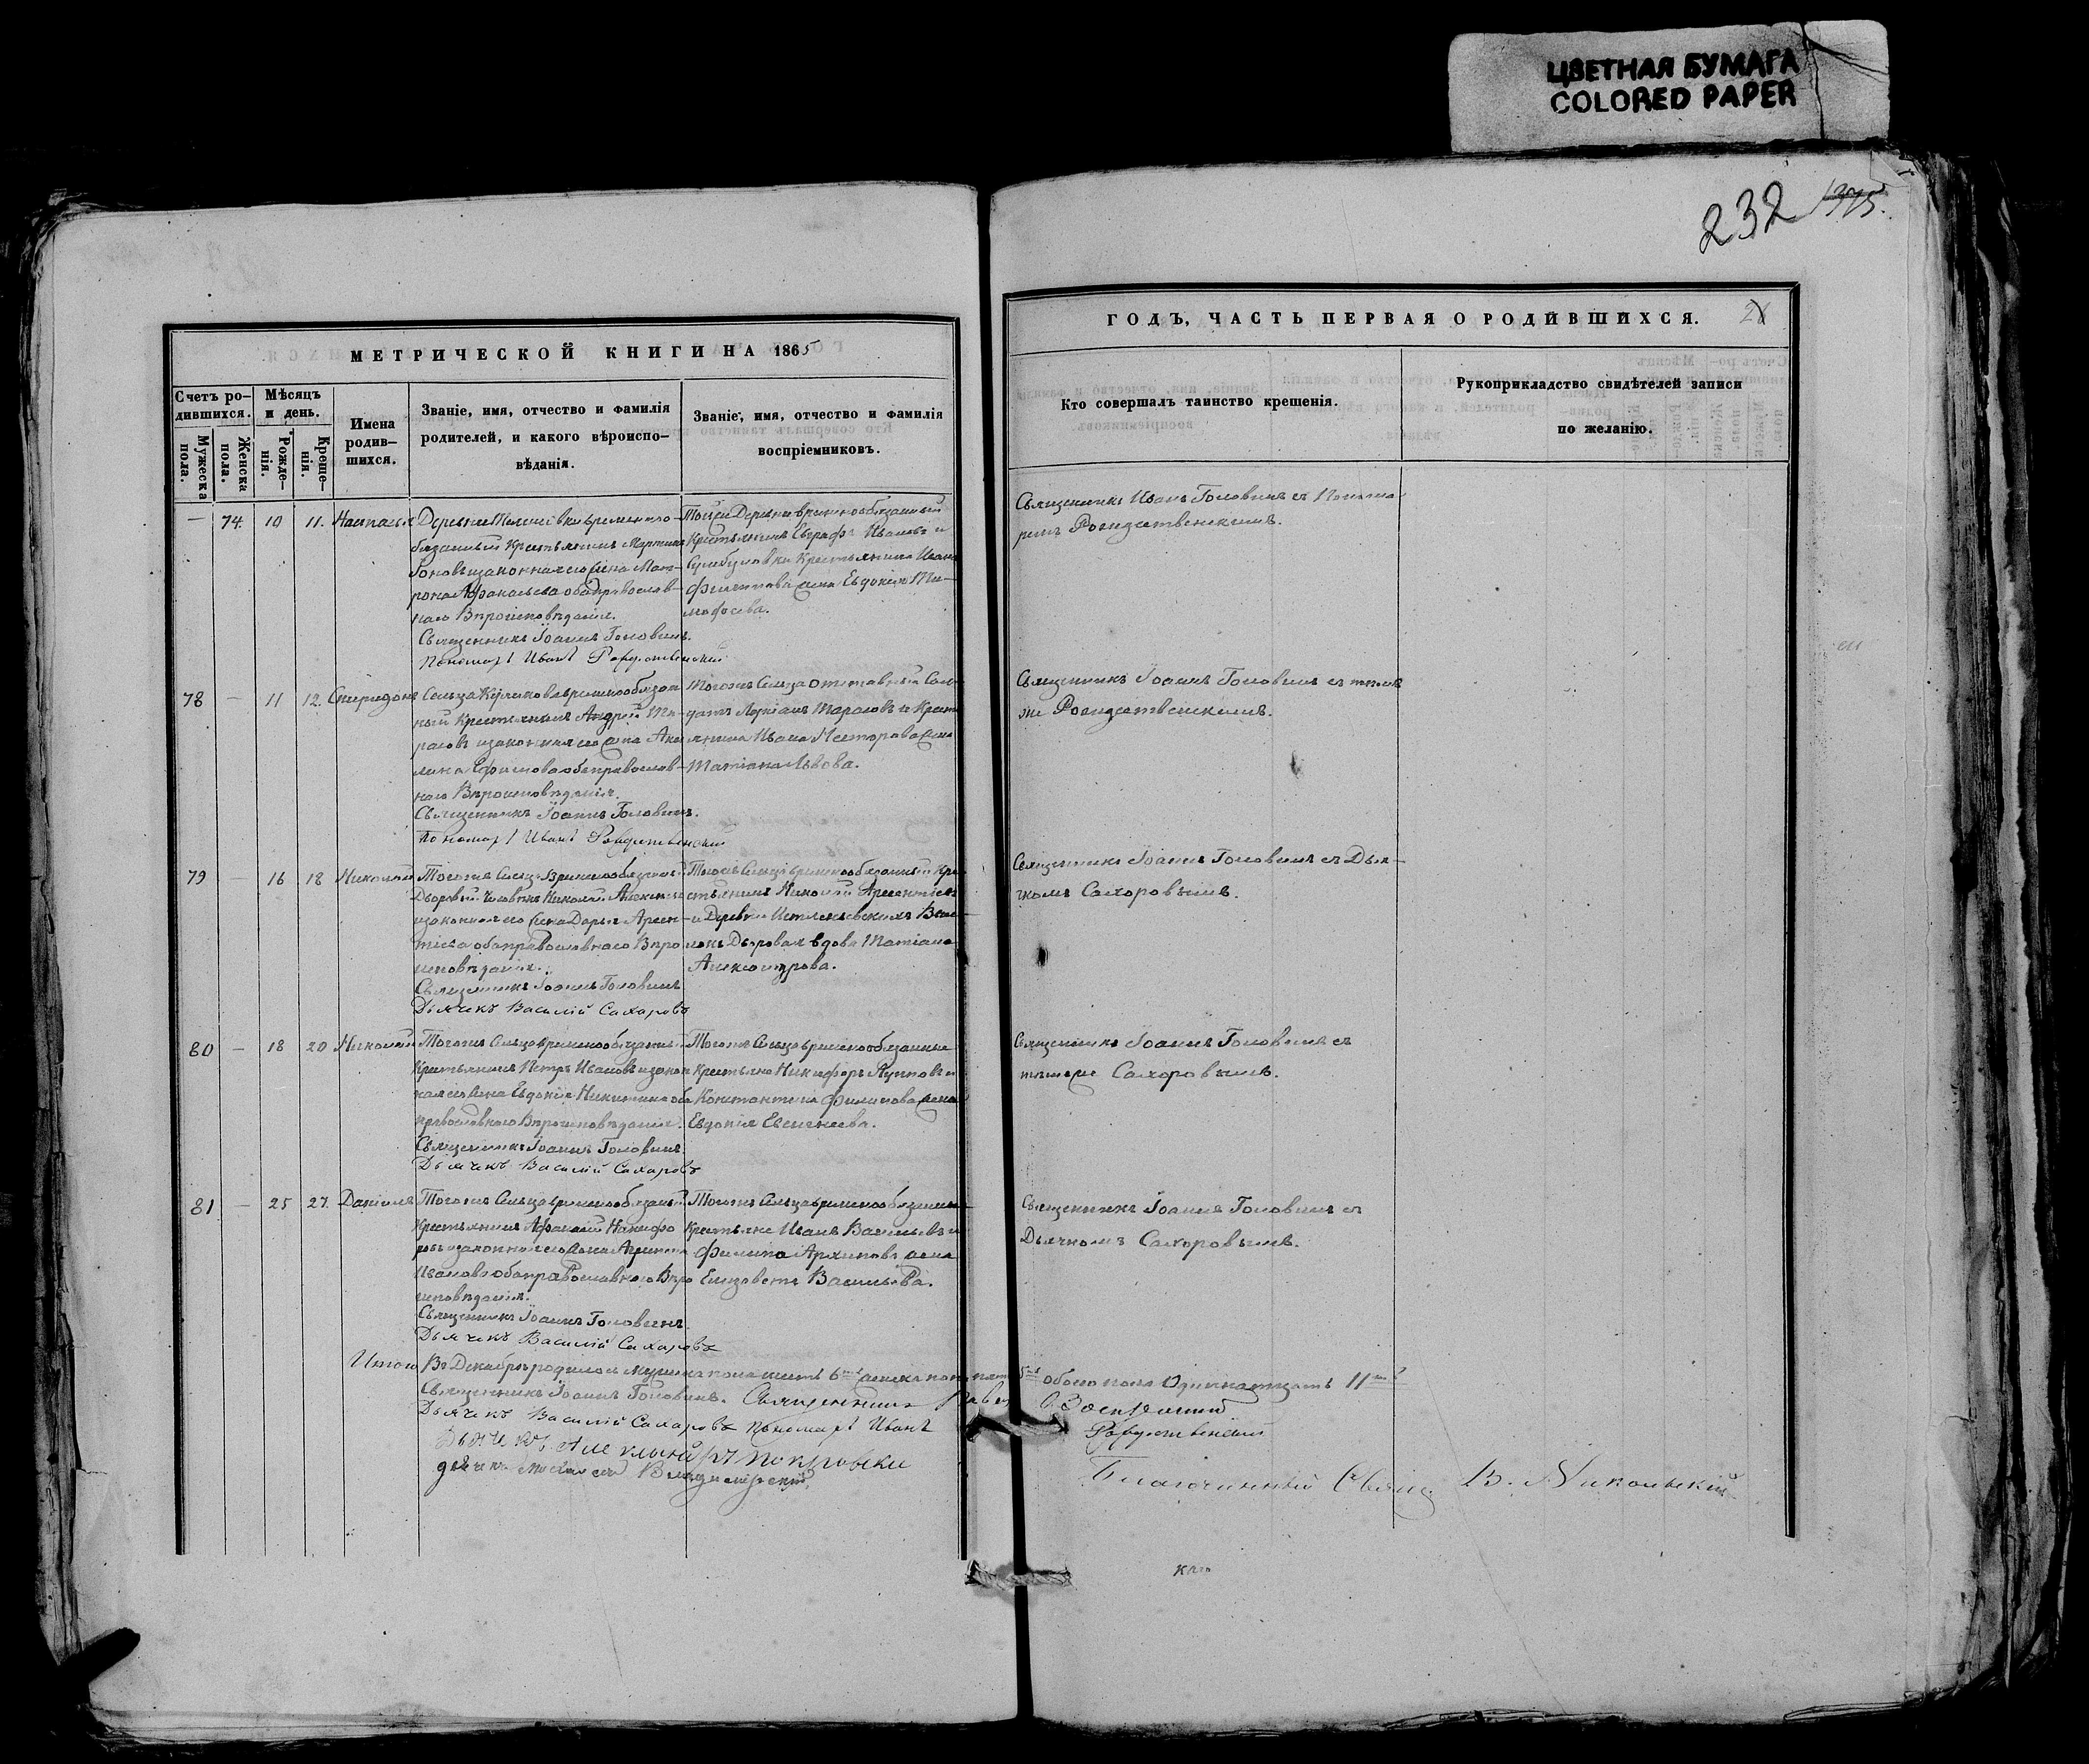 ЦВЕТНАЯ БУМАГА
COLORED PAPER
232
1375.
МЕТРИЧЕСКОЙ КНИГИ НА 1865
Счетъ ро-
дившихся.
Мужеска
пола.
Женска
пола.
Мѣсяцъ
и день.
Рожде-
нія.
Креще-
нія.
Имена
родив-
шихся.
Званіе, имя, отчество и фамилія
родителей, и какого вѣроиспо-
вѣданія.
Званіе, имя, отчество и фамилія
воспріемниковъ.
— 74 10 11. Наталья
Деревни временно-о-
бязанный Крестьянинъ Мартинъ
законная его жена Мат-
рона Афанасьева оба православ-
наго Вѣроисповѣданія.
Священникъ Іоаннъ Головинъ.
Пономарь Иванъ Рождественскій
Тойже Деревни временнообязанный
Крестьянинъ Евграфъ Ивановъ и
Крестьянина Ивана
Филиппова жена Евдокія Ти-
мофеева.
78 — 11 12. Спиридонъ
Сельца Куликова временнообязан
ный Крестьянинъ Андрей Та-
расовъ и законная его жена Аку
лина Ефимова оба православ-
наго Вѣроисповѣданія.
Священникъ Іоаннъ Головинъ.
Пономарь Иванъ Рождественскій
Тогоже Сельца отставный Сол-
датъ Тарасовъ и Крест
янина Ивана Несторова жена
Татіана Львова.
79 — 16 18 Николай
Тогоже Сельца Временнообязан:
Дворовый Человѣкъ Николай
и законная его жена Дарья Арсен-
тіева оба православнаго Вѣро
исповѣданія.
Священникъ Іоаннъ Головинъ
Дьячекъ Василій Сахаровъ
Тогоже Сельца временнообязанный Кре
стьянинъ Николай Арсентіевъ
и Деревни
Дворовая вдова Татіана
Александрова.
80 — 18 20 Николай
Тогоже Сельца временнообязан:
Крестьянинъ Петръ Ивановъ и закон
ная его жена Евдокія Никитина оба
православнаго Вѣроисповѣданія.
Священникъ Іоаннъ Головинъ.
Дьячекъ Василій Сахаровъ
Тогоже Сельца временнообязанные
Крестьяне Никифоръ Лупповъ и
Константина Филипова жена
Евдокія Евсенеева.
81 — 25 27. Даніилъ
Тогоже Сельца временнообязан:
Крестьянинъ Афанасій Никифо
ровъ и законная его жена
Иванова оба православнаго Вѣро
исповѣданія.
Священникъ Іоаннъ Головинъ.
Дьячекъ Василій Сахаровъ
Тогоже Сельца временнообязанные
Крестьяне Иванъ Васильевъ и
Филипа Архипова жена
Елизавета Васильева.
Итого Въ Декабрѣ родилось мужеска пола шесть 6ть женска пола пять
Священникъ Іоаннъ Головинъ. Священникъ Павел
Дьячекъ Василій Сахаровъ Пономарь Иванъ
Дьячекъ Александръ Покровски
дьячекъ Владимірскій.
ГОДЪ, ЧАСТЬ ПЕРВАЯ О РОДИВШИХСЯ.
Кто совершалъ таинство крещенія.
Рукоприкладство свидѣтелей записи
по желанію.
Священникъ Иванъ Головинъ съ Понома
ремъ Рождественскимъ.
Священникъ Іоаннъ Головинъ съ тѣмъ
же Рождественскимъ.
Священникъ Іоаннъ Головинъ съ Дья-
чкомъ Сахаровымъ.
Священникъ Іоаннъ Головинъ съ
тѣмъже Сахаровымъ.
Священникъ Іоаннъ Головинъ съ
Дьячкомъ Сахаровымъ.
5ть обоего пола Одинатцать 11ть
Рождественскій
Благочинный Свящ. В. Никольскій